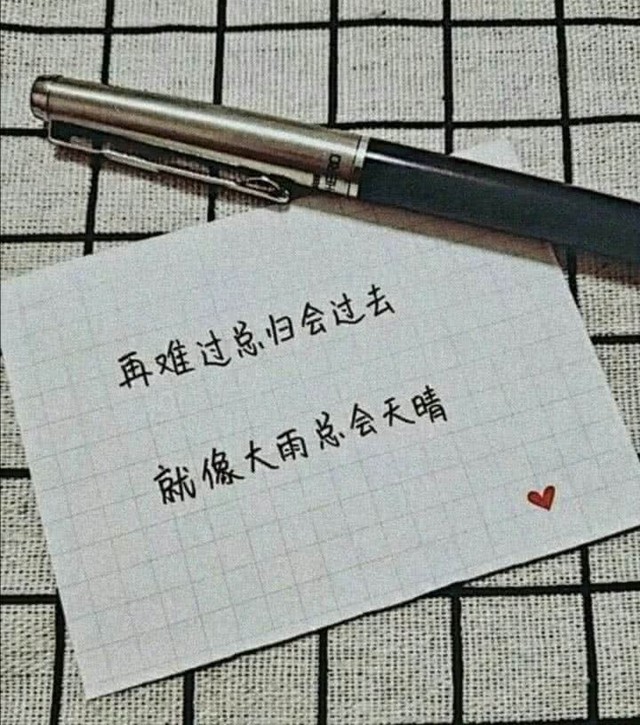 HERO
再难过总归会过去
就像大雨总会天晴